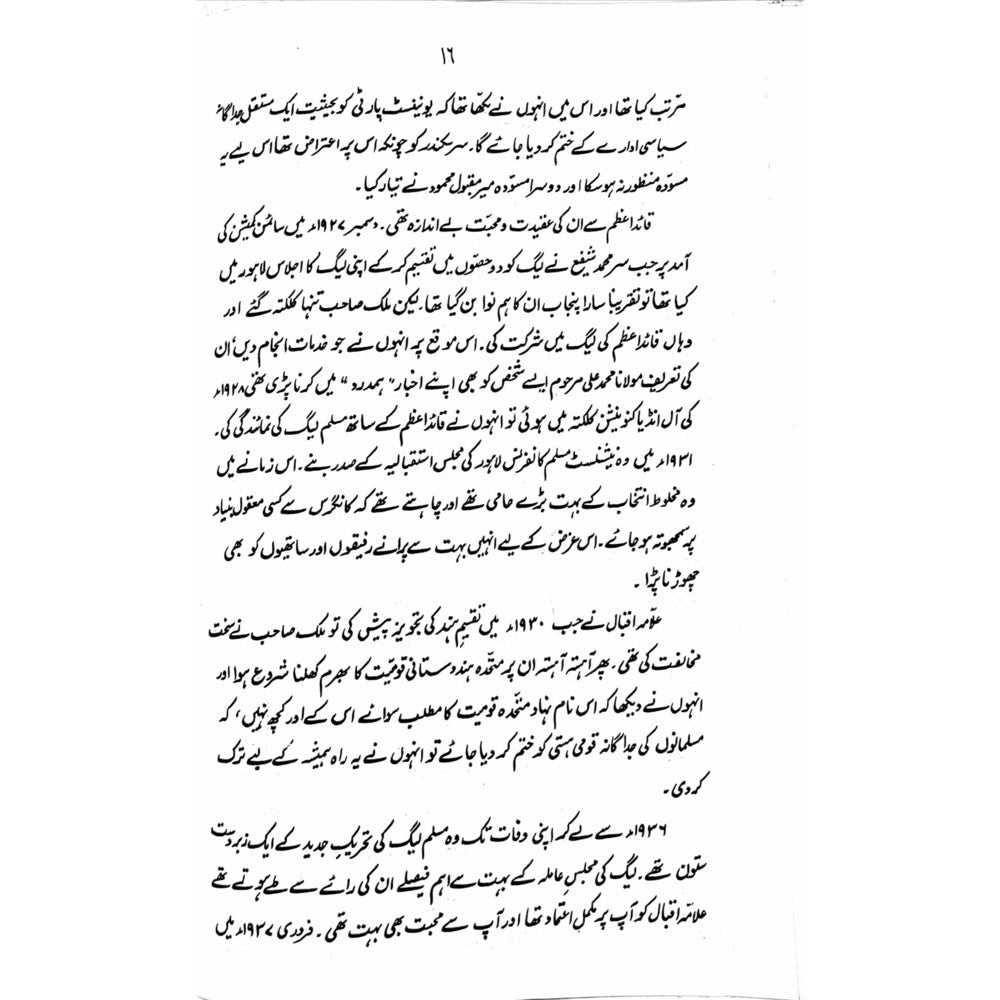 ۱۶
مرتب کیا تھا اور اس میں انہوں نے لکھا تھا کہ یونینسٹ پارٹی کو بحیثیت ایک مستقل جداگانہ
سیاسی ادارے کے ختم کر دیا جائے گا۔ سر سکندر کو چونکہ اس پر اعتراض تھا اس لیے یہ
مسوّدہ منظور نہ ہو سکا اور دوسرا مسوّدہ میر مقبول محمود نے تیار کیا۔
قائد اعظم سے ان کی عقیدت و محبّت بے اندازہ تھی۔ دسمبر ۱۹۲۷ء میں سائمن کمیشن کی
آمد پر جب سر محمد شفیع نے لیگ کو دو حصّوں میں تقسیم کر کے اپنی لیگ کا اجلاس لاہور میں
کیا تھا تو تقریباً سارا پنجاب ان کا ہم نوا بن گیا تھا۔ لیکن ملک صاحب تنہا کلکتہ گئے اور
وہاں قائد اعظم کی لیگ میں شرکت کی۔ اس موقع پر انہوں نے جو خدمات انجام دیں، ان
کی تعریف مولانا محمد علی مرحوم ایسے شخص کو بھی اپنے اخبار "ہمدرد" میں کرنا پڑی تھی ۱۹۲۸ء
کی آل انڈیا کنونیشن کلکتہ میں ہوئی تو انہوں نے قائد اعظم کے ساتھ مسلم لیگ کی نمائندگی کی۔
۱۹۳۱ء میں وہ نیشنلسٹ مسلم کانفرنس لاہور کی مجلس استقبالیہ کے صدر بنے۔ اس زمانے میں
وہ مخلوط انتخاب کے بہت بڑے حامی تھے اور چاہتے تھے کہ کانگرس سے کسی معقول بنیاد
پر سمجھوتہ ہو جائے۔ اس غرض کے لیے انہیں بہت سے پرانے رفیقوں اور ساتھیوں کو بھی
چھوڑنا پڑا۔
علّامہ اقبال نے جب ۱۹۳۰ء میں تقسیمِ ہند کی تجویز پیش کی تو ملک صاحب نے سخت
مخالفت کی تھی۔ پھر آہستہ آہستہ ان پر متّحدہ ہندوستانی قومیّت کا بھرم کھلنا شروع ہوا اور
انہوں نے دیکھا کہ اس نام نہاد متّحدہ قومیت کا مطلب سوائے اس کے اور کچھ نہیں، کہ
مسلمانوں کی جداگانہ قومی ہستی کو ختم کر دیا جائے تو انہوں نے یہ راہ ہمیشہ کے لیے ترک
کر دی۔
۱۹۳۶ء سے لے کر اپنی وفات تک وہ مسلم لیگ کی تحریکِ جدید کے ایک زبردست
ستون تھے۔ لیگ کی مجلسِ عاملہ کے بہت سے اہم فیصلے ان کی رائے سے طے ہوتے تھے
علامہ اقبال کو آپ پر مکمل اعتماد تھا اور آپ سے محبت بھی بہت تھی۔ فروری ۱۹۳۷ء میں